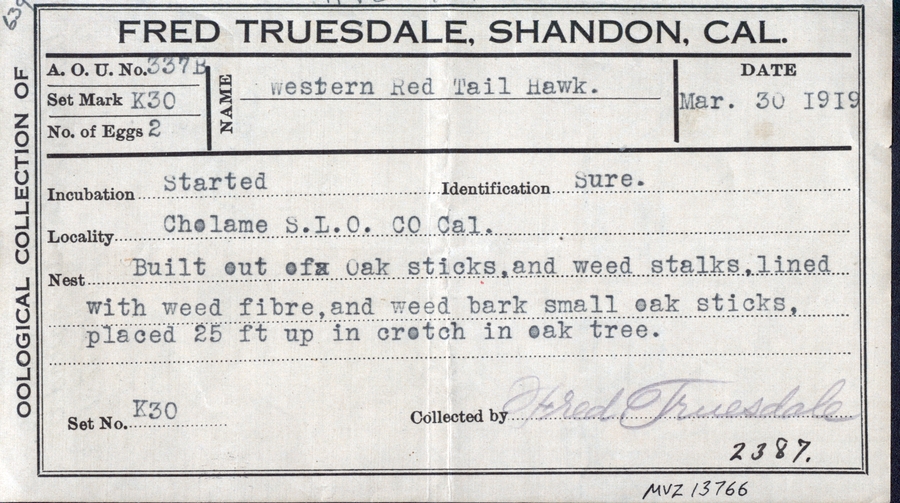 639
OOLOGICAL COLLECTION OF
FRED TRUESDALE, SHANDON, CAL.
A. O. U. No. 337B
Set Mark K30
No. of Eggs 2
NAME
western Red Tail Hawk.
DATE
Mar. 30 1919
Incubation Started Identification Sure.
Locality Cholame S.L.O. CO Cal.
Nest Built out of Oak sticks,and weed stalks,lined
with weed fibre,and weed bark small oak sticks,
placed 25 ft up in crotch in oak tree.
Set No. K30
Collected by Fred Truesdale
2387.
MVZ 13766